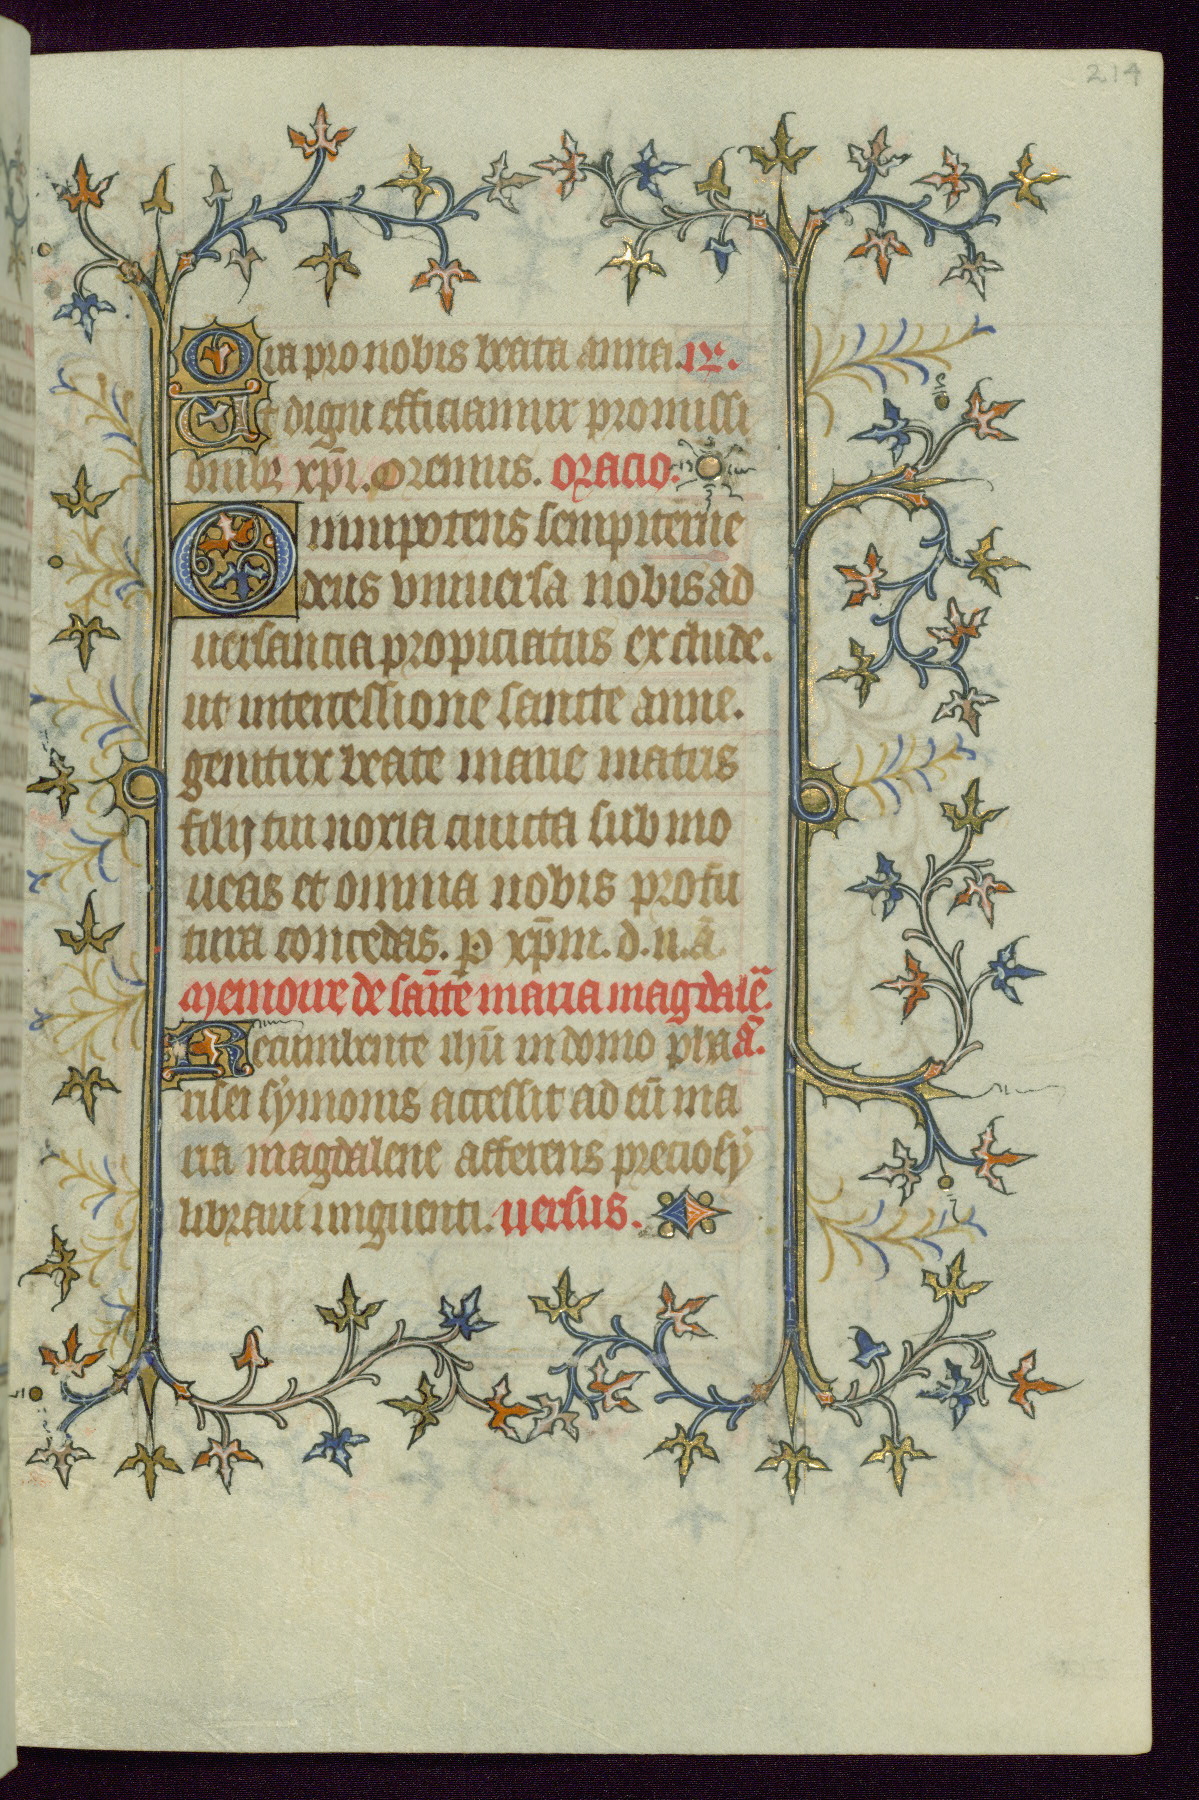 214
Ora pro nobis beata anna. R.
Ut digni efficiamur promissi
onibz xp̄i. Oremus. Oracio.
Omnipotens sempiterne
deus vniuersa nobis ad
uersancia propiciatus exclude.
ut intercessione sancte anne.
genitrix beate marie matris
filij tui noxia cuncta submo
ueas et omnia nobis profu
tura concedas. p xp̄m. d. n. a
Memoire de sāīte maria magdalē.
Recumbente ihū in domo pha a.
risei symonis accessit ad eū ma
ria magdalene afferens preciosi
libram unguenti. versus.